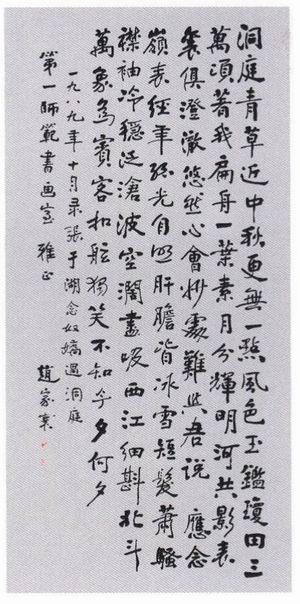 洞庭青草近中秋更無一點風色玉鑑瓊田三
萬頃著我扁舟一葉素月分輝明河共影表
裏俱澄澈悠然心會妙處難與君說 應念
嶺表經年孤光自照肝膽皆冰雪短髮蕭騷
襟袖冷穩泛滄波空闊盡吸西江細斟北斗
萬象為賓客扣舷獨笑不知今夕何夕
一九八九年十月录張于湖念奴嬌過洞庭
第一師範書画室 雅正
趙家熹